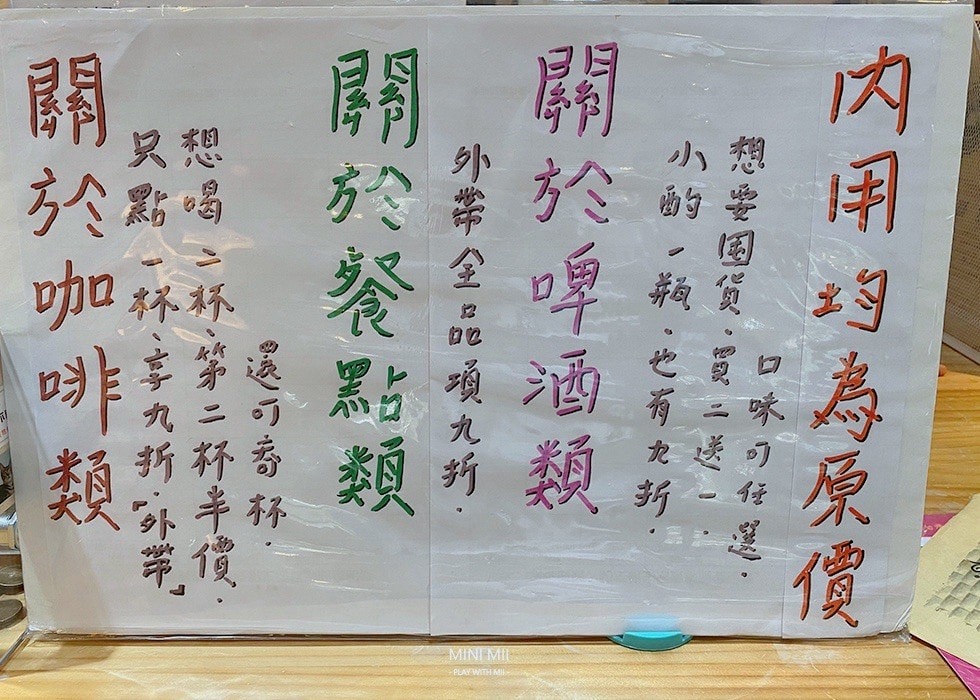 內用均為原價
關於啤酒類
想要囤貨、買二送一.
口味可任選.
小酌一瓶.也有九折.
關於餐點類
外帶全品項九折.
關於咖啡類
想喝二杯、第二杯半價.
還可寄杯.
只點一杯.享九折.「外帶」
MINI MII
- PLAY WITH MII -